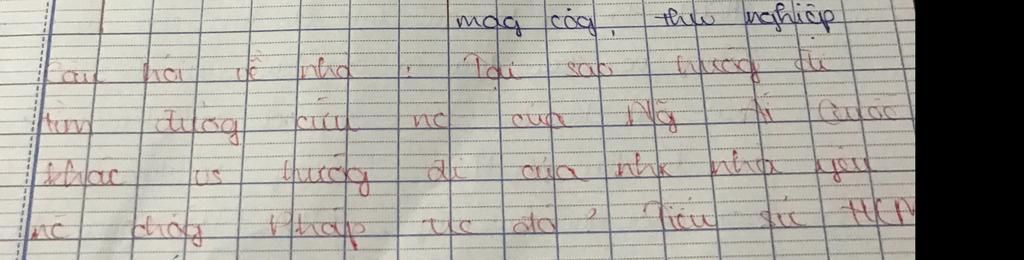 mag côg, thư nghiệp
Câu hỏi về nhà : Tại sao hướg đi
tìm đườg cứu nc của Ng Ái Quốc
khác vs hướg đi của nhx nhà yêu
nc chốg Pháp tc đó ? Tiểu sử HCM